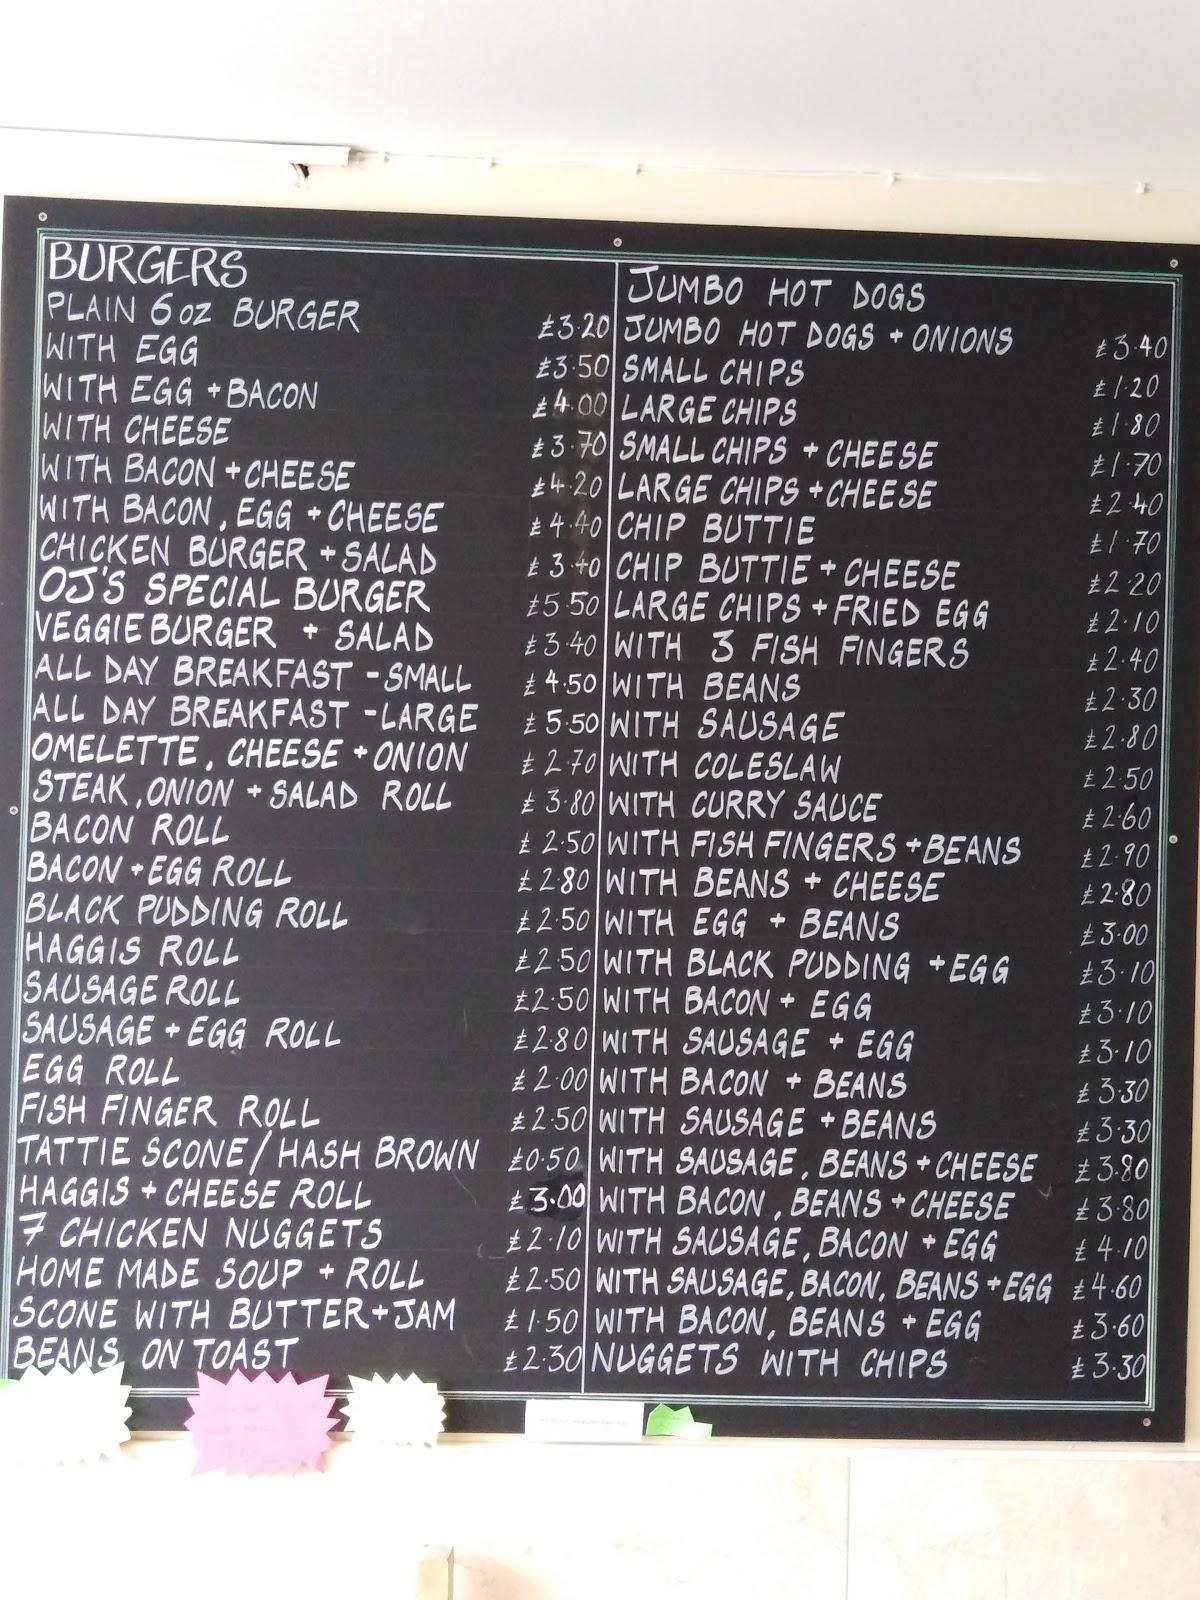 BURGERS
PLAIN 6oz BURGER £3.20
WITH EGG £3.50
WITH EGG + BACON £4.00
WITH CHEESE £3.70
WITH BACON + CHEESE £4.20
WITH BACON, EGG + CHEESE £4.40
CHICKEN BURGER + SALAD £3.40
OJ'S SPECIAL BURGER £5.50
VEGGIE BURGER + SALAD £3.40
ALL DAY BREAKFAST - SMALL £4.50
ALL DAY BREAKFAST - LARGE £5.50
OMELETTE, CHEESE + ONION £2.70
STEAK, ONION + SALAD ROLL £3.80
BACON ROLL £2.50
BACON + EGG ROLL £2.80
BLACK PUDDING ROLL £2.50
HAGGIS ROLL £2.50
SAUSAGE ROLL £2.50
SAUSAGE + EGG ROLL £2.80
EGG ROLL £2.00
FISH FINGER ROLL £2.50
TATTIE SCONE/HASH BROWN £0.50
HAGGIS + CHEESE ROLL £3.00
7 CHICKEN NUGGETS £2.10
HOME MADE SOUP + ROLL £2.50
SCONE WITH BUTTER + JAM £1.50
BEANS ON TOAST £2.30
JUMBO HOT DOGS
JUMBO HOT DOGS + ONIONS £3.40
SMALL CHIPS £1.20
LARGE CHIPS £1.80
SMALL CHIPS + CHEESE £1.70
LARGE CHIPS + CHEESE £2.40
CHIP BUTTIE £1.70
CHIP BUTTIE + CHEESE £2.20
LARGE CHIPS + FRIED EGG £2.10
WITH 3 FISH FINGERS £2.40
WITH BEANS £2.30
WITH SAUSAGE £2.80
WITH COLESLAW £2.50
WITH CURRY SAUCE £2.60
WITH FISH FINGERS + BEANS £2.90
WITH BEANS + CHEESE £2.80
WITH EGG + BEANS £3.00
WITH BLACK PUDDING + EGG £3.10
WITH BACON + EGG £3.10
WITH SAUSAGE + EGG £3.10
WITH BACON + BEANS £3.30
WITH SAUSAGE + BEANS £3.30
WITH SAUSAGE, BEANS + CHEESE £3.80
WITH BACON, BEANS + CHEESE £3.80
WITH SAUSAGE, BACON + EGG £4.10
WITH SAUSAGE, BACON, BEANS + EGG £4.60
WITH BACON, BEANS + EGG £3.60
NUGGETS WITH CHIPS £3.30